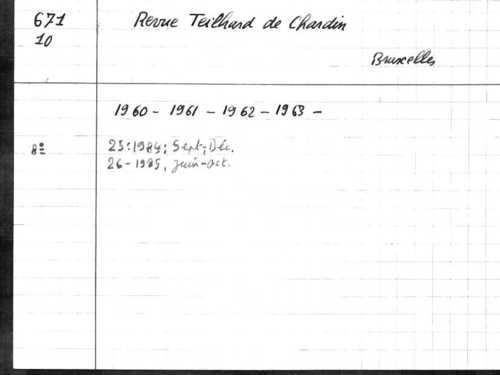 671 Revue Teilhard de Chardin
10
Bruxelles
1960 - 1961 - 1962 - 1963 -
8º 25:1984; Sept; Déc.
26-1985, Juin-Oct.